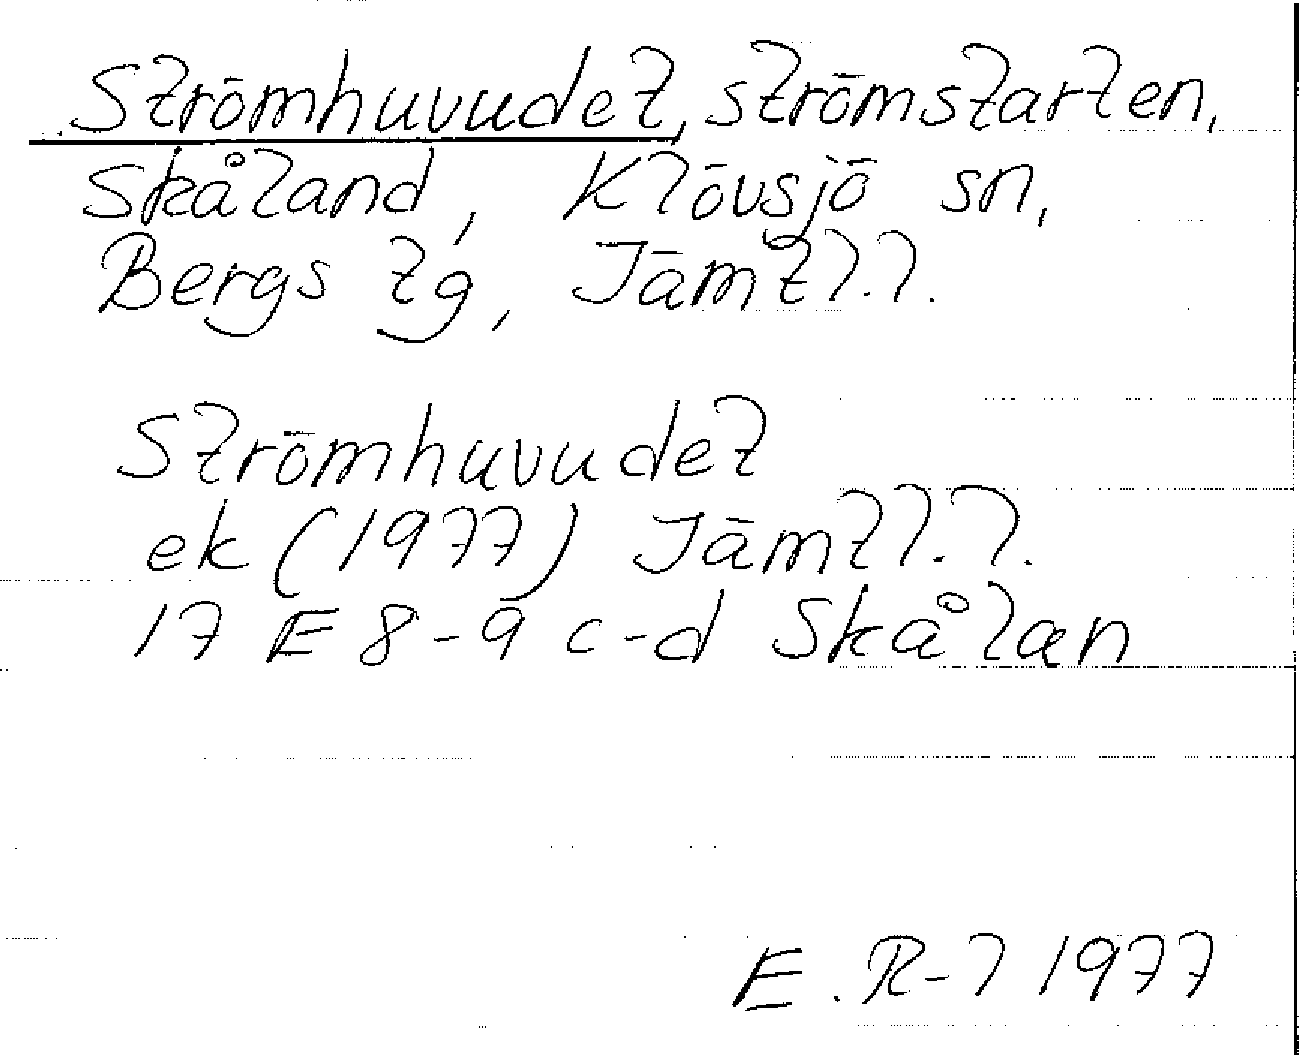 Strömhuvudet, strömstarten,
Skåland, Klövsjö sn,
Bergs tg, Jämtl. l.
Strömhuvudet
ek (1977) Jämtl. l.
17 E 8-9 c-d Skålan
E. R-l 1977